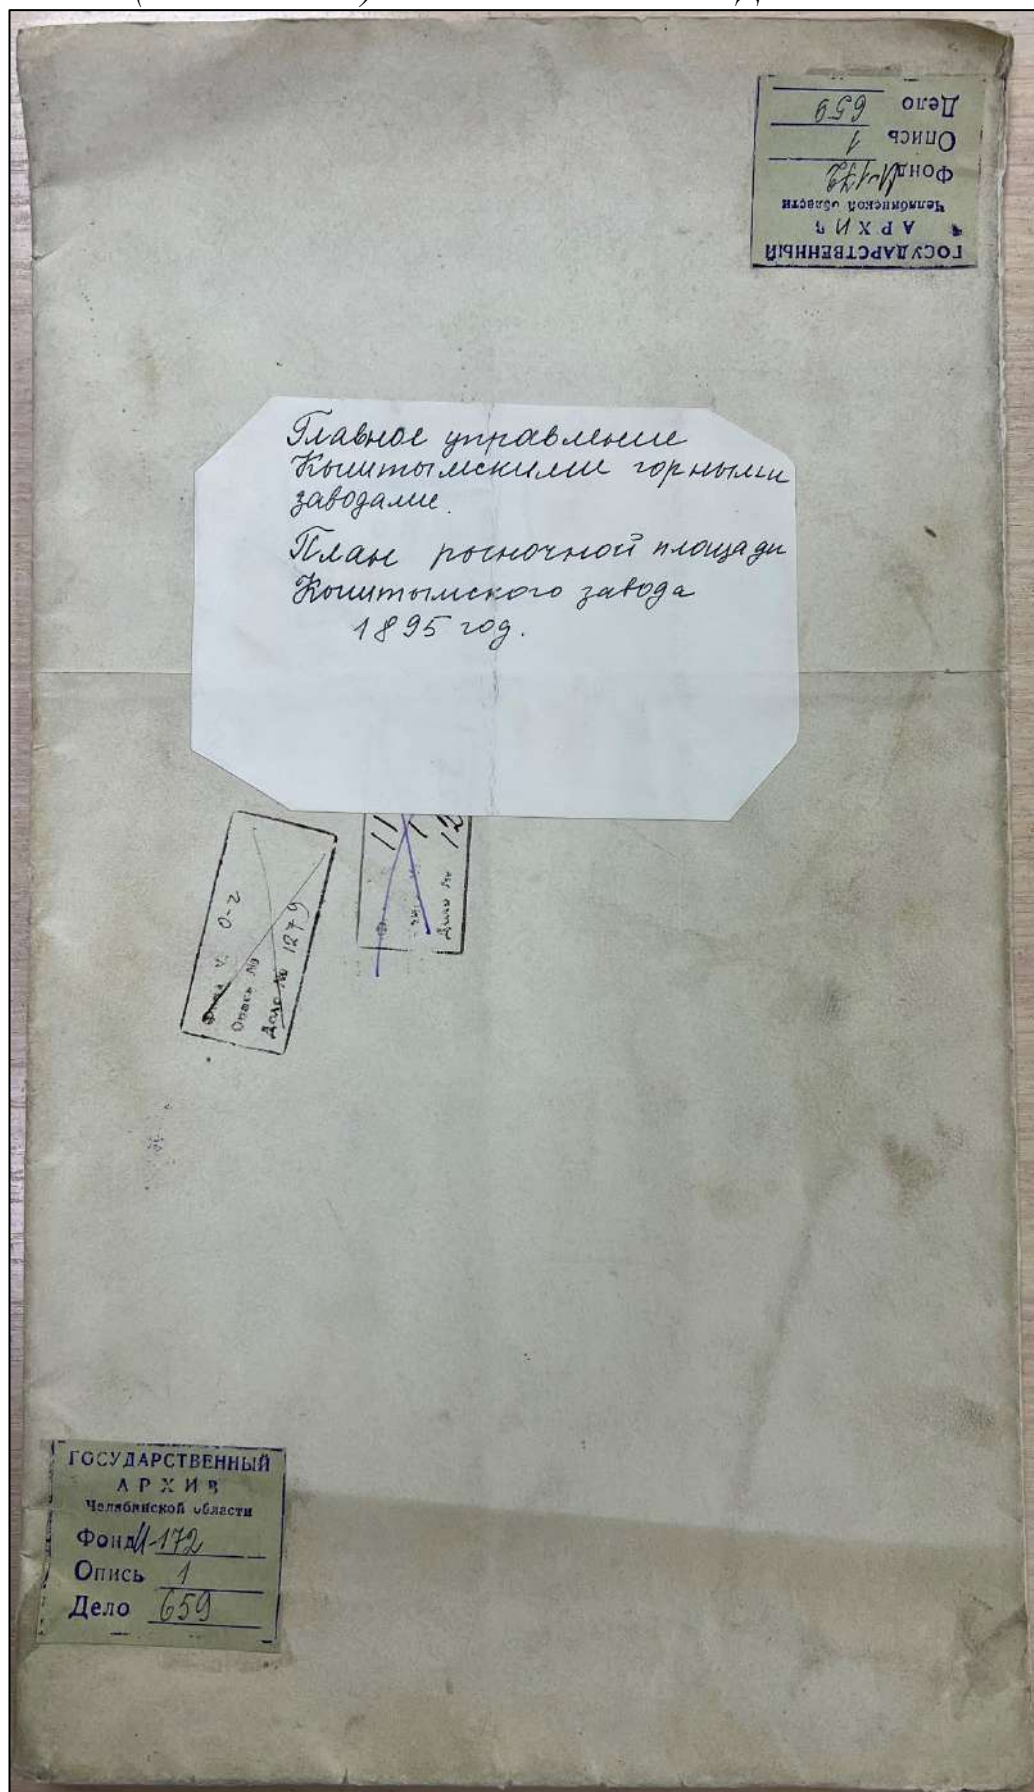 Дело 659
Опись 1
Фонд И-172
Челябинской области
АРХИВ
ГОСУДАРСТВЕННЫЙ
Главное управление
Кыштымскими горными
заводами.
План рыночной площади
Кыштымского завода
1895 год.
Фонд № О-2
Опись №
Дело № 1279
11
1
Дело № 12
ГОСУДАРСТВЕННЫЙ
АРХИВ
Челябинской области
Фонд И-172
Опись 1
Дело 659